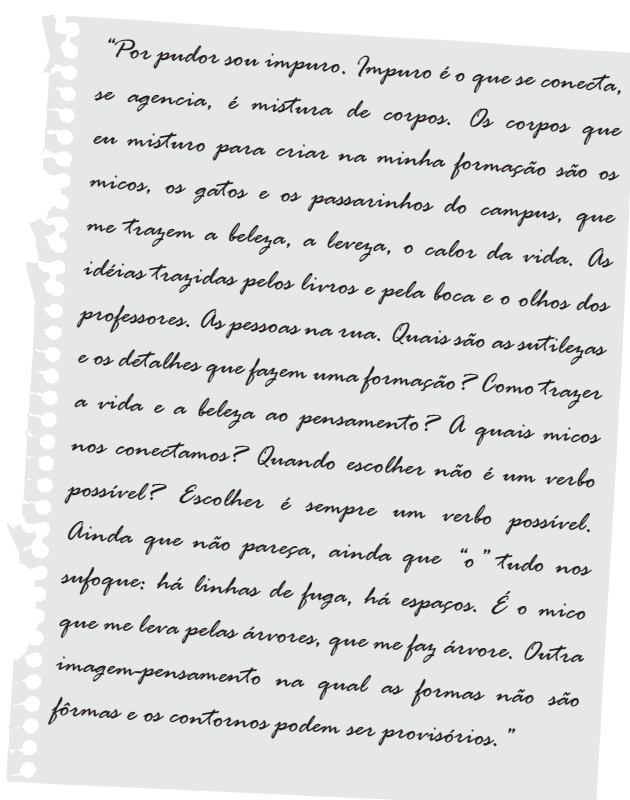 “Por pudor sou impuro. Impuro é o que se conecta,
se agencia, é mistura de corpos. Os corpos que
eu misturo para criar na minha formação são os
micos, os gatos e os passarinhos do campus, que
me trazem a beleza, a leveza, o calor da vida. As
idéias trazidas pelos livros e pela boca e o olhos dos
professores. As pessoas na rua. Quais são as sutilezas
e os detalhes que fazem uma formação? Como trazer
a vida e a beleza ao pensamento? A quais micos
nos conectamos? Quando escolher não é um verbo
possível? Escolher é sempre um verbo possível.
Ainda que não pareça, ainda que “o” tudo nos
sufoque: há linhas de fuga, há espaços. É o mico
que me leva pelas árvores, que me faz árvore. Outra
imagem-pensamento na qual as formas não são
fôrmas e os contornos podem ser provisórios.”